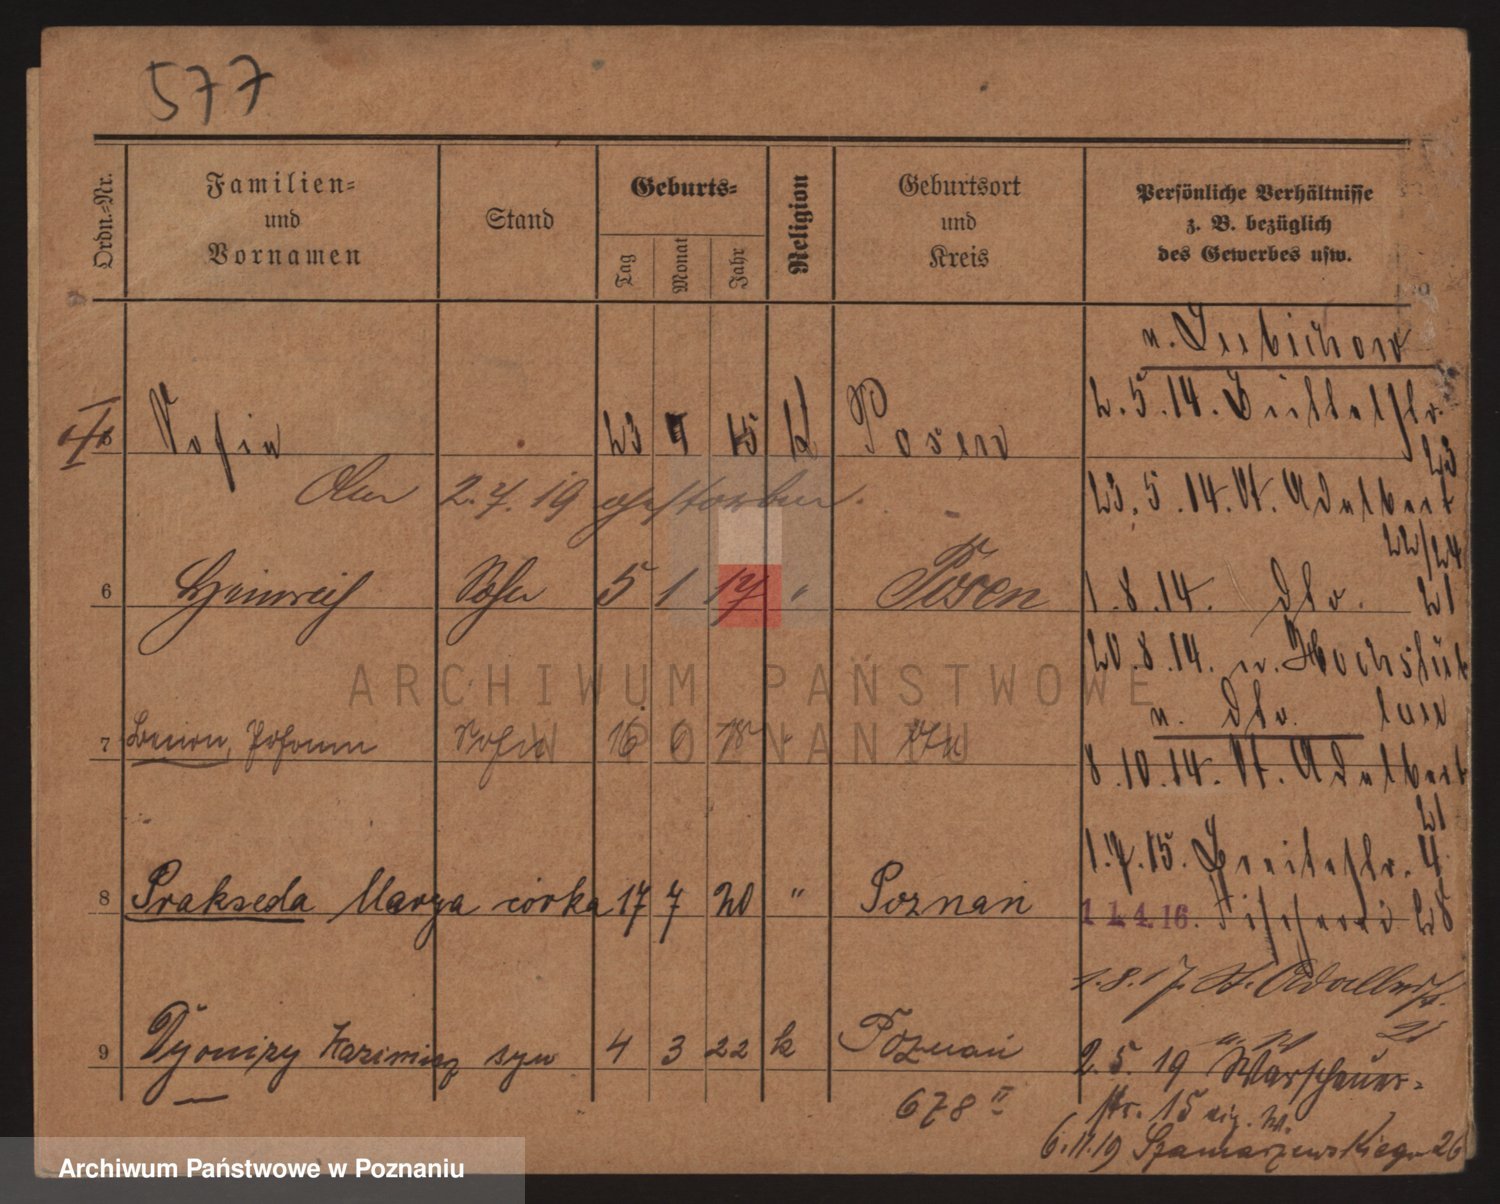 577
Ordn.-Nr.
Familien-
und
Vornamen
Stand
Geburts-
Tag
Monat
Jahr
Religion
Geburtsort
und
Kreis
Persönliche Verhältnisse
z. B. bezüglich
des Gewerbes usw.
23 15 k Posen
2.7.19 gestorben.
6 Heinrich Sohn 5 1 17 " Posen
7 Johann 16 18
8 Prakseda Marya córka 17 7 20 " Poznań
9 Dyonizy Kazimierz syn 4 3 22 k Poznań
678 II
2.5.14.
23
23.5.14. St. Adalbert
22/24
1.8.14. dto. 21
20.8.14. n.
n. dto.
8.10.14. St. Adalbert
21
1.7.15. Breitestr. 4
11.4.16. Fischerei 28
1.8.17. St. Adalbert
2.5.19 Warschauer-
str. 15
6.11.19 Szamarzewskiego 26
ARCHIWUM PAŃSTWOWE
W POZNANIU
Archiwum Państwowe w Poznaniu